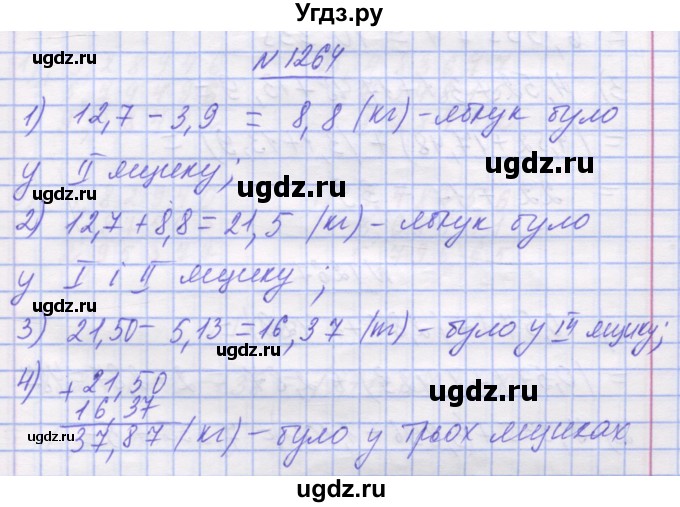 Угдз.ру
№ 1264
1) 12,7 - 3,9 = 8,8 (кг) - яблук було
у II ящику;
2) 12,7 + 8,8 = 21,5 (кг) - яблук було
у I і II ящику;
3) 21,50 - 5,13 = 16,37 (кг) - було у III ящику;
4) + 21,50
16,37
37,87 (кг) - було у трьох ящиках.
ugdz.ru
ugdz.ru
ugdz.ru
ugdz.ru
ugdz.ru
ugdz.ru
ugdz.ru
ugdz.ru
ugdz.ru
ugdz.ru